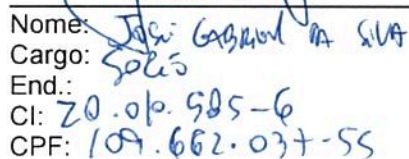 Nome: José Gabriel da Silva
Cargo: Sócio
End.:
CI: 20.010.585-6
CPF: 109.662.037-55